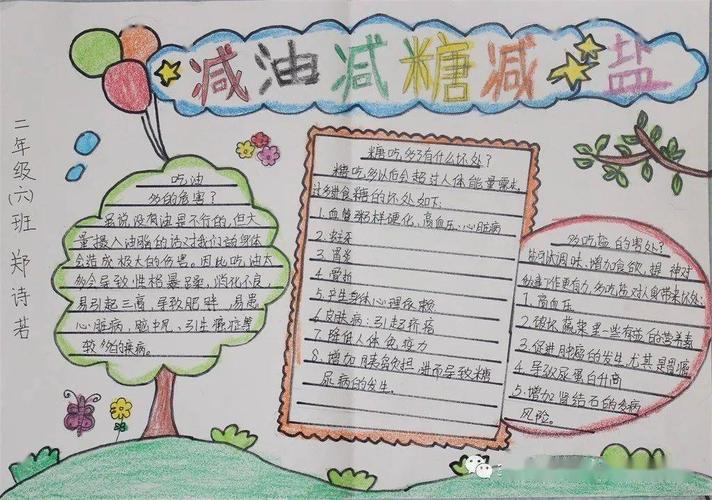 减油减糖减盐
二年级(六)班 郑诗若
吃油
多的危害?
虽说没有油是不行的,但大
量摄入油脂的话对我们的身体
会造成极大的伤害。因此吃油太
多会导致性格暴躁,消化不良
易引起三高,导致肥胖,易患
心脏病,脑中风、引生癌症等
较多的疾病。
糖吃多了有什么坏处?
糖吃多以后会超过人体能量需求。
过多进食糖的坏处如下:
1.血管粥样硬化、高血压、心脏病
2.蛀牙
3.胃炎
4.骨折
5.产生身体心理依赖
6.皮肤病:引起疥疮
7.降低人体免疫力
8.增加胰岛负担进而导致糖
尿病的发生。
多吃盐的害处?
盐可以调味、增加食欲,提神对
做事工作更有力,多吃盐对人食带来坏处:
1.高血压
2.破坏蔬菜里一些有益的营养素
3.促进肿瘤的发生尤其是胃癌
4.导致尿蛋白升高
5.增加肾结石的疾病
风险。